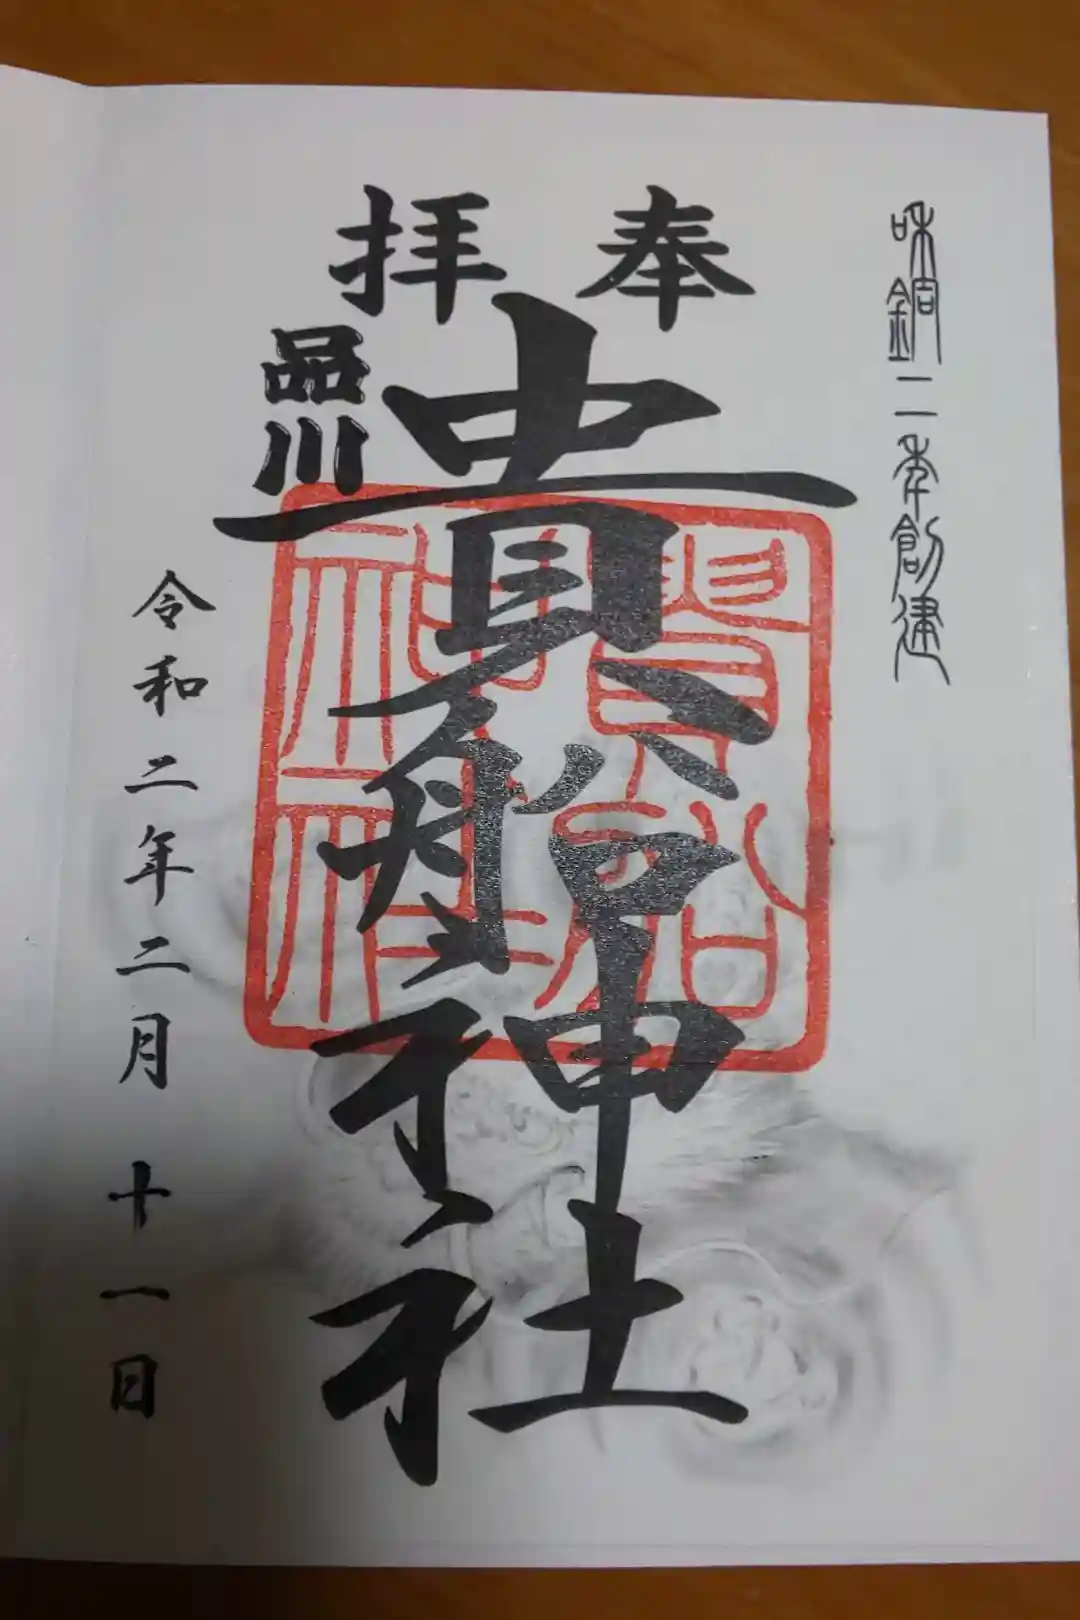 和銅二年創建
奉拝
貴船神社
貴船神社
品川
令和二年二月十一日